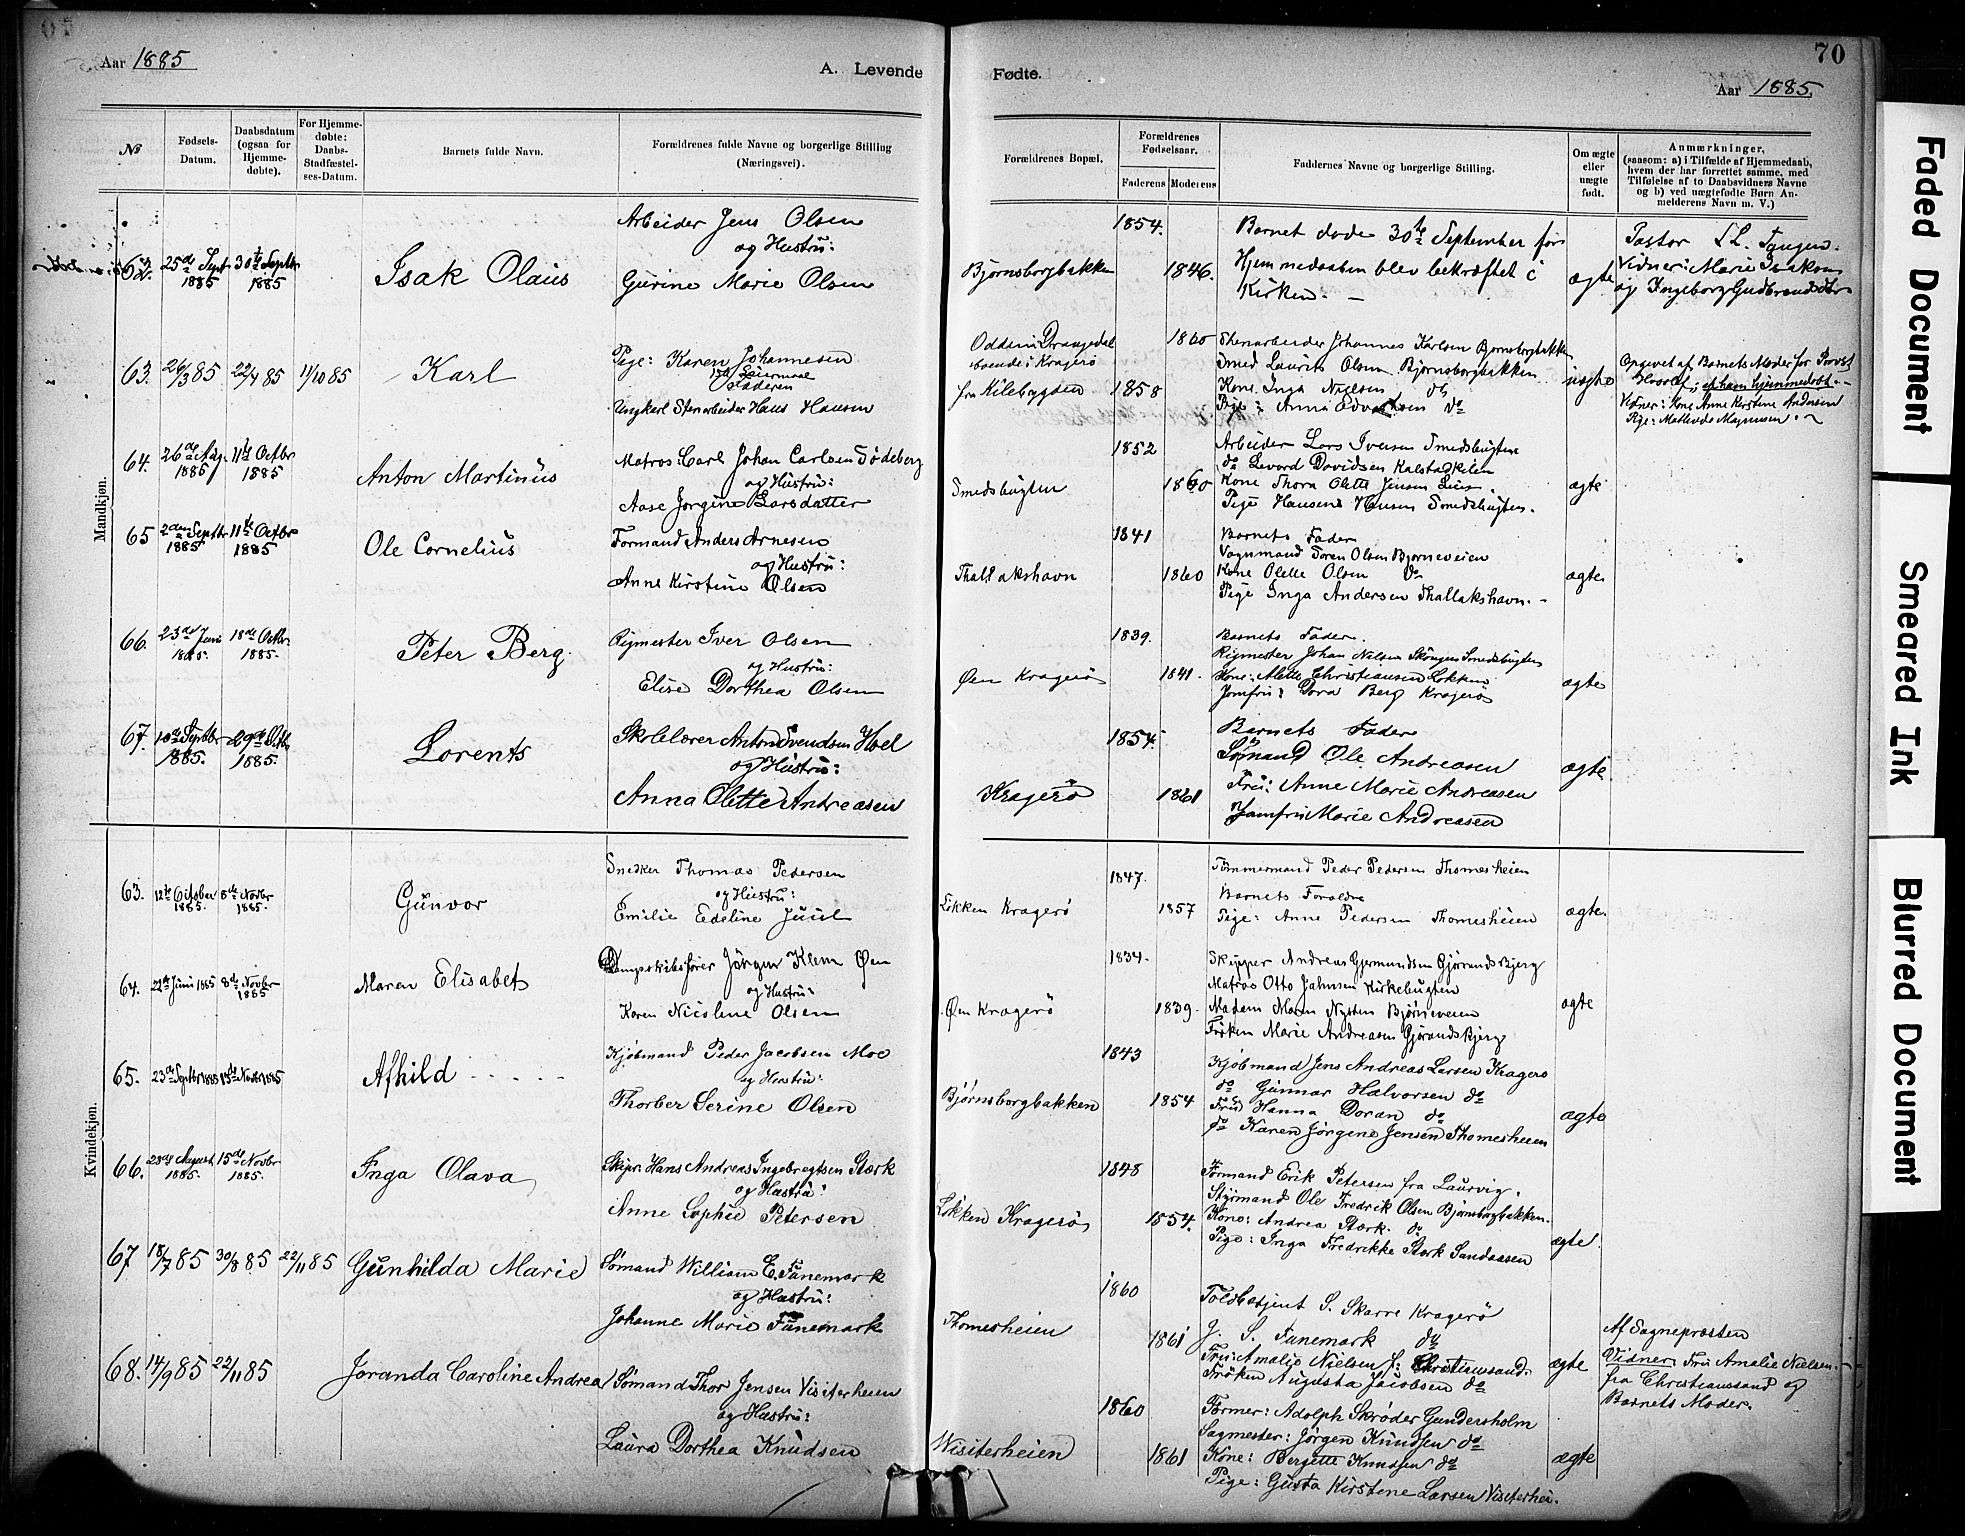 Aar 1885
A. Levende Fødte.
70
Aar 1885.
№
Fødsels-Datum.
Daabsdatum (ogsaa for Hjemmedøbte).
For Hjemmedøbte: Daabs-Stadfæstelses-Datum.
Barnets fulde Navn.
Forældrenes fulde Navne og borgerlige Stilling (Næringsvei).
Forældrenes Bopæl.
Forældrenes Fødselsaar.
Faderens
Moderens
Faddernes Navne og borgerlige Stilling.
Om ægte eller uægte født.
Anmærkninger,
(saasom: a) i Tilfælde af Hjemmedaab,
hvem der har forrettet samme, med
Tilføielse af to Daabsvidners Navne
og b) ved uægtefødte Børn Anmelderens Navn m. V.)
Mandkjøn.
62. 25de Sept 1885 30te Septbr 1885
Isak Olaus
Arbeider Jens Olsen
og Hustru:
Gurine Marie Olsen
Bjørnsborgbakken
1854.
1846.
Barnet døde 30te September før
Hjemmedaaben blev bekræftet i
Kirken. —
ægte
Pastor L. L. Tangen.
Vidner: Marie Isaksen
og Ingeborg Gudbrandsdtr
63. 26/3 85 22/4 85 11/10 85
Karl
Pige: Karen Johannesen
Faderen
Ungkarl Stenarbeider Hans Hansen
Odden i Drangedal
boende i Kragerø
fra Kilebygden
1860
1858
Stenarbeider Johannes Karlsen Bjørnsborgbakken
Smed Laurits Olsen Bjørnsborgbakken
Kone Inga Nielsen do
Pige: Anna Edvardsen do
uægte
Opgivet af Barnets Moder for Provst
Vidner: Kone Anne Kirstine Andersen
Pige: Mathilde Magnusen.
64. 26de Aug. 1885 11te Octbr 1885
Anton Martinus
Matros: Carl Johan Carlsen Södeberg
og Hustru:
Aase Jørgine Larsdatter
Smedsbugten
1852
1860
Arbeider Lars Iversen Smedsbugten
do Levord Davidsen Kalstadkilen
Kone Thora Olette Jensen
Pige Hansine Hansen Smedsbugten.
ægte
65 2den Septbr 1885 11te Octbr 1885
Ole Cornelius
Formand Anders Arnesen
og Hustru:
Anne Kirstine Olsen
Thallakshavn
1841
1860
Barnets Fader
Vognmand Søren Olsen Bjørneveien
Kone Olette Olsen do
Pige Inga Andersen Thallakshavn. -
ægte
66. 23de Juni 1885. 18de Octbr. 1885.
Peter Berg.
Rigmester Iver Olsen
og Hustru:
Elise Dorthea Olsen
Øen Kragerø
1839.
1841.
Barnets Fader.
Rigmester Johan Nielsen Skougen Smedsbugten
Kone: Alette Christiansen Løkken
Jomfru: Dora Berg Kragerø
ægte
67. 10de Septbr 1885. 29de Octbr 1885.
Lorents
Skolelærer Anton Svendsen Hoel
og Hustru:
Anna Olette Andreasen
Kragerø
1854.
1861
Barnets Fader
Sømand Ole Andreasen
Fru: Anne Marie Andreasen
Jomfru Marie Andreasen
ægte
Kvindekjøn.
63. 12te October 1885. 8de Novbr 1885.
Gunvor
Snedker Thomas Pedersen
og Hustru:
Emilie Edeline Juul
Løkken Kragerø
1847.
1857
Tømmermand Peder Pedersen Thomesheien
Barnets Forældre
Pige: Anne Pedersen Thomesheien
ægte.
64. 22de Juni 1885 8de Novbr 1885
Maren Elisabet
Dampskibsfører Jörgen Klem Øen
og Hustru:
Karen Nicoline Olsen
Øen Kragerø
1834.
1839.
Skipper Andreas Gjermundsen Gjørands Bjerg
Matros Otto Jahnsen Kirkebugten
Madam Maren Nysten Bjørneveien
Frøken Marie Andreasen Gjørands Bjerg
ægte
65. 23de Septbr 1885 15de Novbr 1885
Afhild
Kjøbmand Peder Jacobsen Moe
og Hustru:
Thorber Serine Olsen
Bjørnsborgbakken
1843
1854
Kjøbmand Jens Andreas Larsen Kragerø
do Gunnar Halvorsen do
Fru Hanna Doran do
do Karen Jørgene Jensen Thomesheien
ægte
66. 28de August 1885. 15de Novbr 1885.
Inga Olava
Skipr. Hans Andreas Ingebregtsen Stærk
og Hustru:
Anne Sophie Petersen
Løkken Kragerø
1848
1854.
Formand Erik Petersen fra Laurvig.
Styrmand Ole Fredrik Olsen Bjørnsborgbakken.
Kone: Andrea Stærk. do
Pige: Inga Fredrikke Stærk Sandaasen
ægte.
67 18/7 85 30/8 85 22/11 85
Gunhilda Marie
Sømand William E. Funemark
og Hustru:
Johanne Marie Funemark
Thomesheien
1860
1861
Toldbetjent S. Skarre Kragerø
J. S. Funemark do
Fru: Amalie Nielsen f: Christianssand.
Frøken Augusta Jacobsen do
ægte
Af Sognepræsten
Vidner: Fru Amalie Nielsen.
fra Christianssand og
Barnets Moder.
68. 14/9 85 22/11 85
Joranda Caroline Andrea
Sømand Thor Jensen Visiterheien
og Hustru:
Laura Dorthea Knudsen
Visiterheien
1860
1861
Former: Adolph Skrøder Gundersholm
Sagmester: Jørgen Knudsen do
Kone: Bergette Knudsen do
Pige: Gusta Kirstene Larsen Visiterhei.
ægte
Faded Document
Smeared Ink
Blurred Document